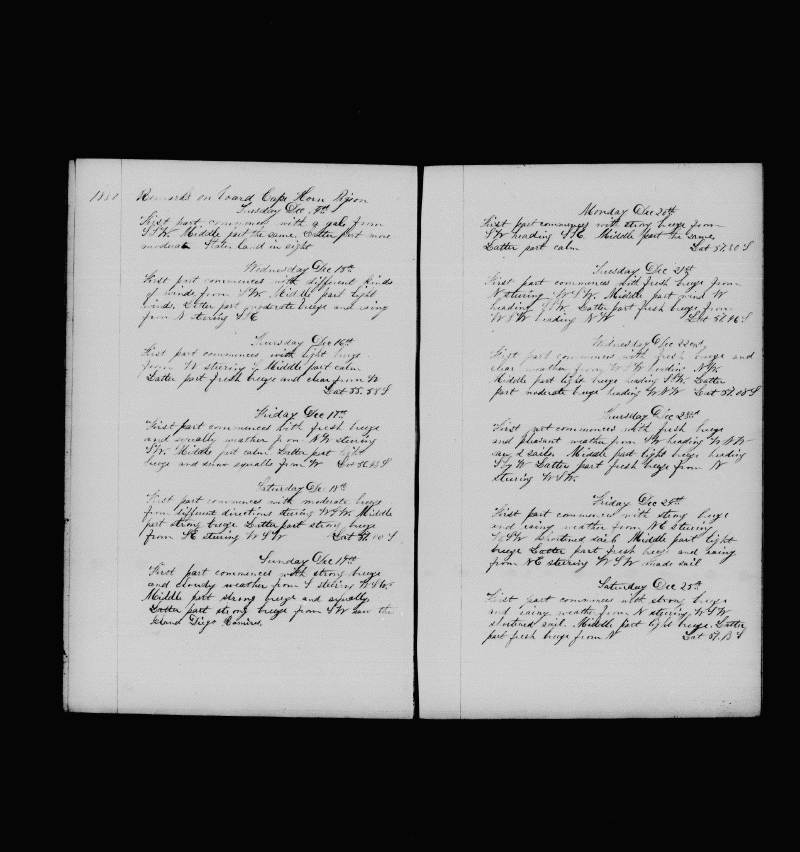 1880 Remarks on board Cape Horn Pigeon
Tuesday Dec. 14th
First part commences with a gale from
S.S.W. Middle part the same. Latter part more
moderate Staten land in sight
Wednesday Dec 15th
First part commences with different kinds
of winds from S.W. Middle part light
winds. Latter part moderate breeze and
from N steering S.E
Thursday Dec 16th
First part commences with light breeze
from W steering S Middle part calm
Latter part fresh breeze and clear from W
Lat 55.58 S
Friday Dec 17th
First part commences with fresh breeze
and squally weather from NW steering
S.W. Middle part calm Latter part light
breeze and snow squalls from W Lat 56.23 S
Saturday Dec 18th
First part commences with moderate breeze
from different directions steering W.S.W. Middle
part strong breeze. Latter part strong breeze
from SE steering W S W Lat 57.00 S
Sunday Dec 19th
First part commences with strong breeze
and cloudy weather from S steering W.S.W.
Middle part strong breeze and squally
Latter part strong breeze from SW saw the
Island Diego Ramires.
Monday Dec 20th
First part commences with strong breeze from
SW heading S.S.E. Middle part the same,
Latter part calm Lat 57.30 S
Tuesday Dec 21st
First part commences with fresh breeze from
N steering W.S.W. Middle part wind W
heading S.S.W. Latter part fresh breeze from
W S W heading N W Lat 57.46 S
Wednesday Dec 22nd
First part commences with fresh breeze and
clear weather from W S W heading N.W.
Middle part light breeze heading S.W. Latter
part moderate breeze heading W N W Lat 57.08 S
Thursday Dec 23rd
First part commences with fresh breeze
and pleasant weather from SW heading W N W
sails. Middle part light breeze heading
S by W Latter part fresh breeze from N
steering W.S.W.
Friday Dec 24th
First part commences with strong breeze
and rainy weather from N E steering
W S W shortened sail Middle part light
breeze Latter part fresh breeze and rainy
from N E steering W S W made sail
Saturday Dec 25th
First part commences with strong breeze
and rainy weather from N steering W S W
shortened sail. Middle part light breeze. Latter
part fresh breeze from N Lat 57.13 S